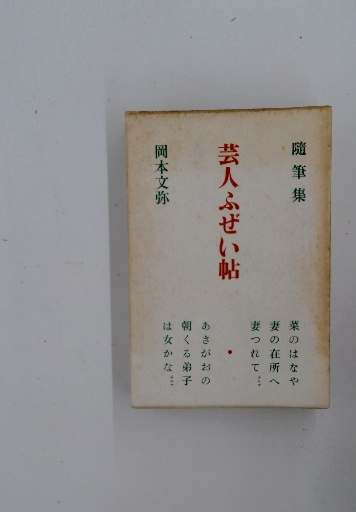 隨筆集
芸人ふぜい帖
岡本文弥
菜のはなや
妻の在所へ
妻つれて…
・
あさがおの
朝くる弟子
は女かな…